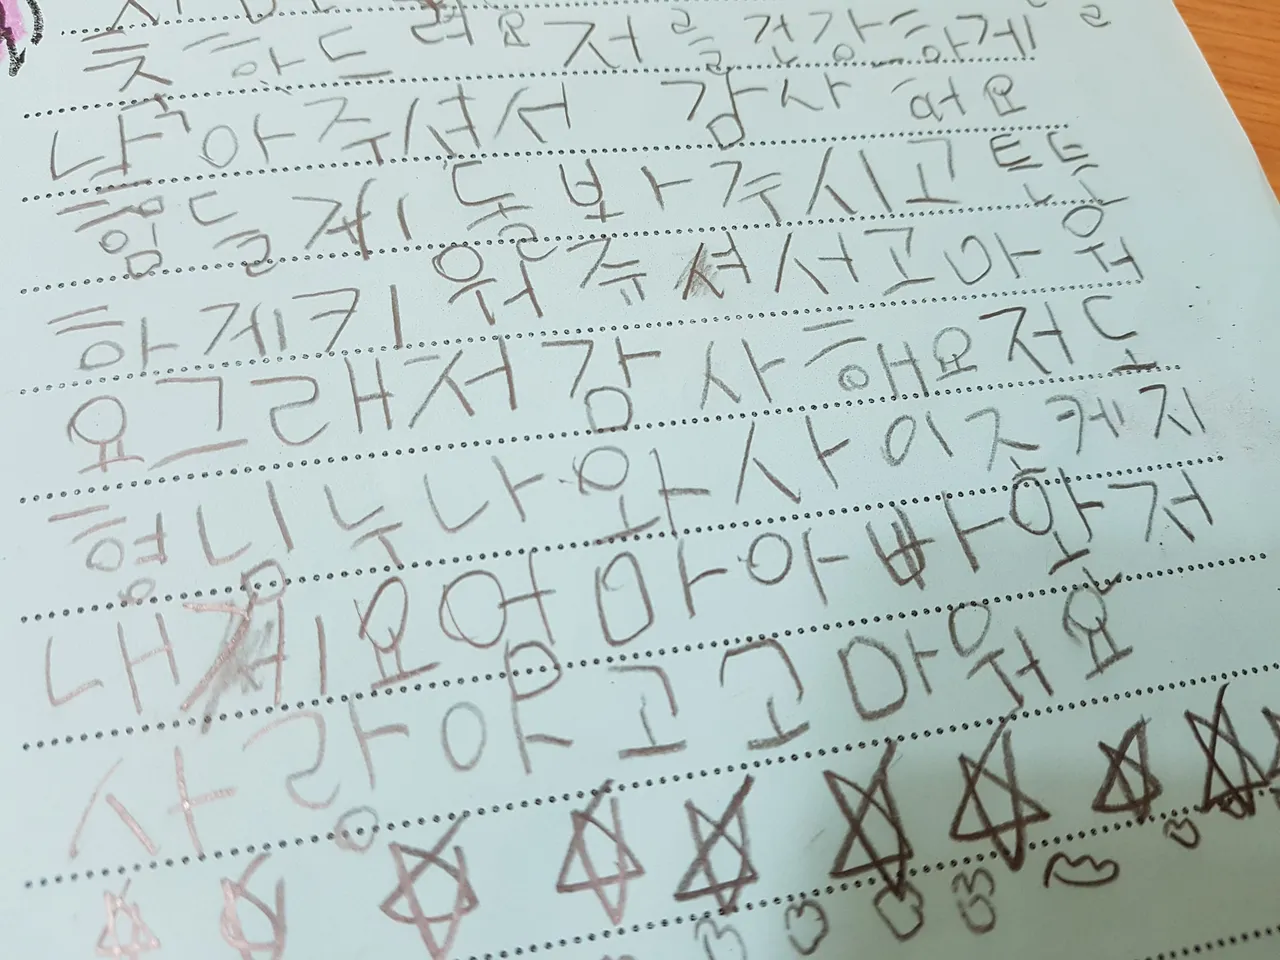 축하드려요 저를 건강하게
낳아주셔서 감사해요
힘들게 돌봐주시고 튼튼
하게 키워주셔서 고마워
요 그래서 감사해요 저도
형니 누나와 사이조케 지
낼게요 엄마 아빠 완전
사랑 아고 고마워요